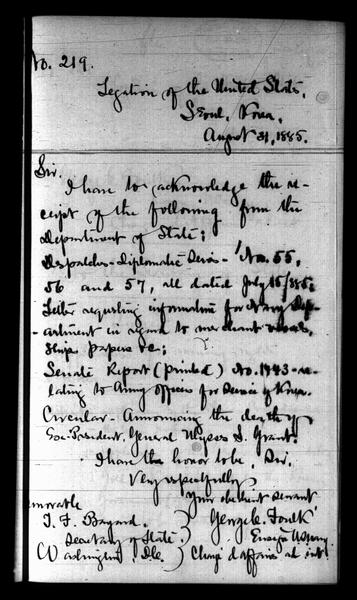 No. 219.
Legation of the United States,
Seoul, Korea,
August 31, 1885.
Sir.
I have to acknowledge the re-
ceipt of the following from the
Department of State;
Despatches - Diplomatic Series - Nos. 55,
56 and 57, all dated July 15/85;
Letter requesting information for Navy Dep-
-artment in regard to merchant vessels,
Ships papers &c;
Senate Report (printed) No. 1443 - re-
lating to Army Officers for Service of Korea.
Circular - Announcing the death of
Ex-President, General Ulysses S. Grant.
I have the honor to be, Sir,
Very respectfully
Your obedient servant
T. F. Bayard. George C. Foulk
Secretary of State. Ensign U.S. Navy
Washington, D.C. Chargé d'affaires ad int.